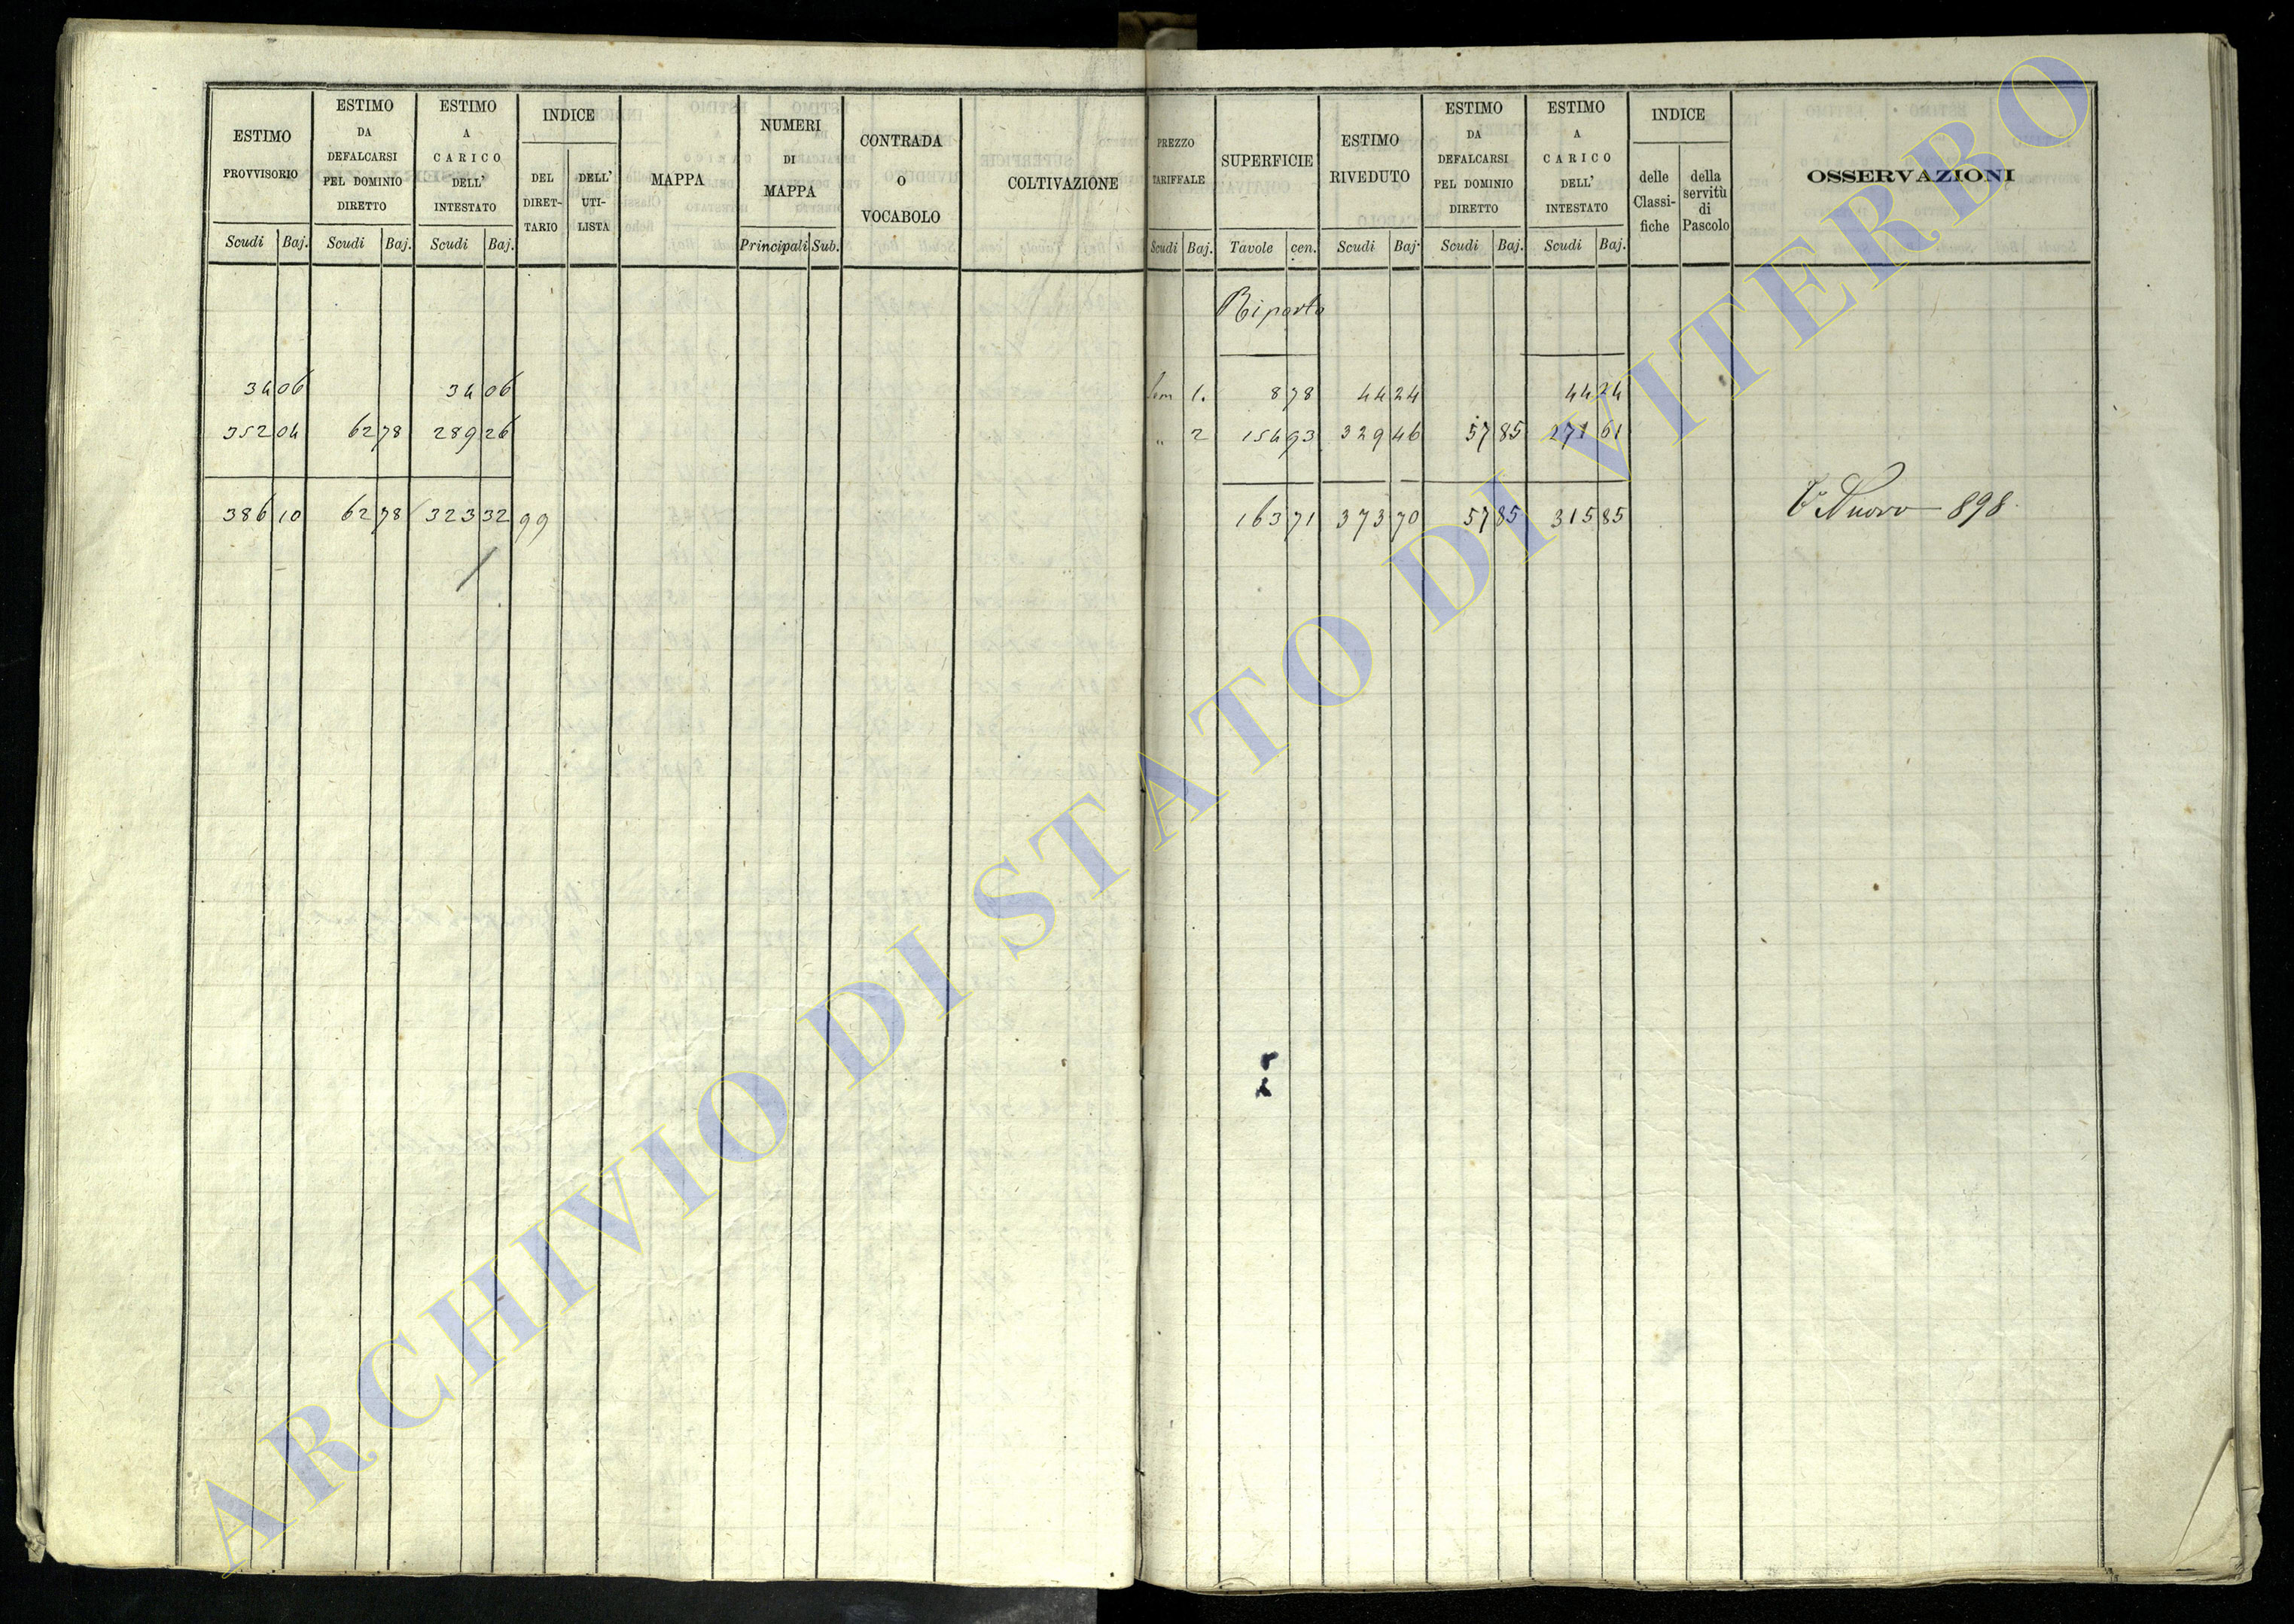 ESTIMO PROVVISORIO
Scudi Baj.
ESTIMO DA DEFALCARSI PEL DOMINIO DIRETTO
Scudi Baj.
ESTIMO A CARICO DELL' INTESTATO
Scudi Baj.
INDICE
DEL DIRET-TARIO
DELL' UTI-LISTA
MAPPA
NUMERI DI MAPPA
Principali Sub.
CONTRADA O VOCABOLO
COLTIVAZIONE
PREZZO TARIFFALE
Scudi Baj.
SUPERFICIE
Tavole cen.
ESTIMO RIVEDUTO
Scudi Baj.
ESTIMO DA DEFALCARSI PEL DOMINIO DIRETTO
Scudi Baj.
ESTIMO A CARICO DELL' INTESTATO
Scudi Baj.
INDICE
delle Classi-fiche
della servitù di Pascolo
OSSERVAZIONI
Riporto
34 06 34 06 1. 8 78 44 24 44 24
352 04 62 78 289 26 " 2 154 93 329 46 57 85 271 61
386 10 62 78 323 32 99 163 71 373 70 57 85 315 85 Nuovo 898
ARCHIVIO DI STATO DI VITERBO